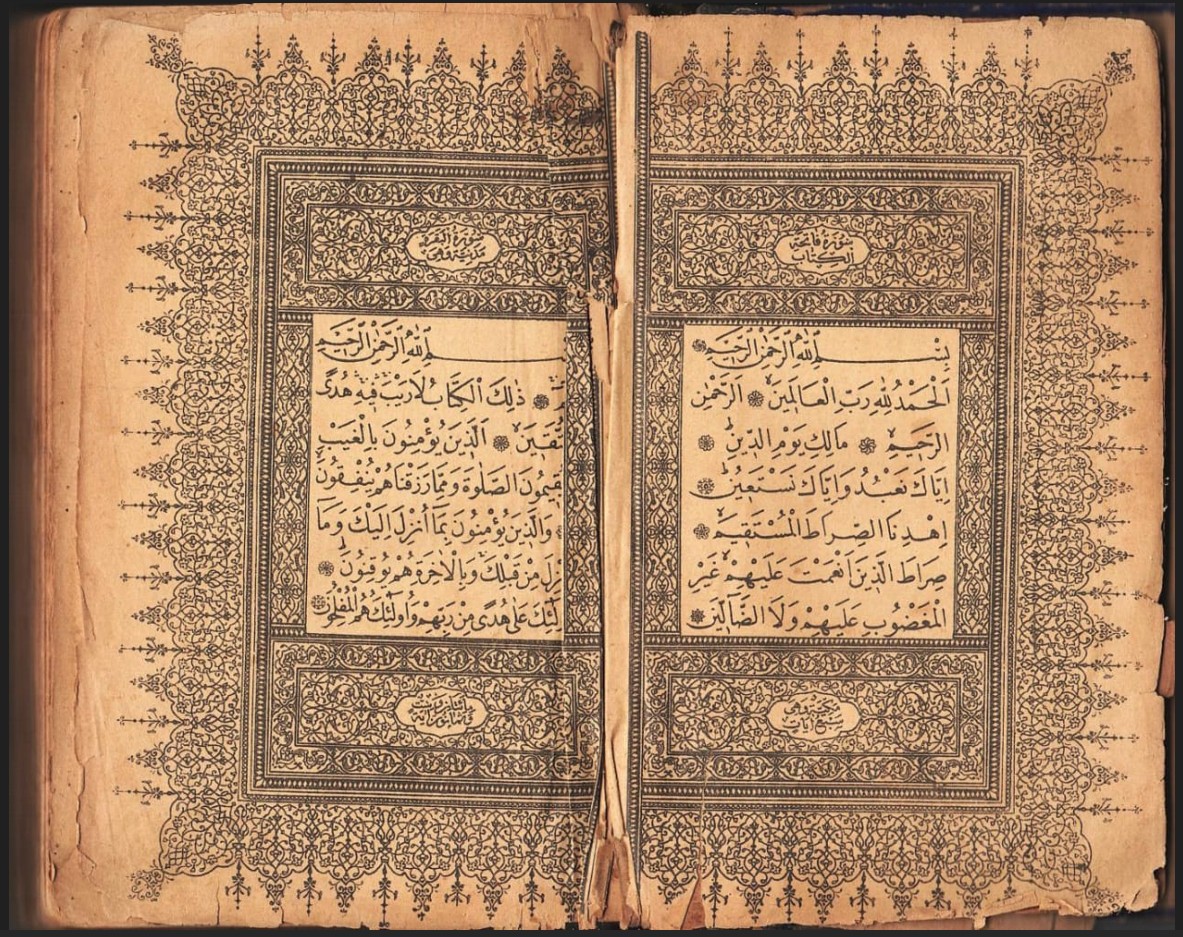 سُورَةُ فَاتِحَةِ
الْكِتَابِ
بِسْمِ اللّٰهِ الرَّحْمٰنِ الرَّحِيمِ
اَلْحَمْدُ لِلّٰهِ رَبِّ الْعَالَمِينَ ۝ اَلرَّحْمٰنِ
الرَّحِيمِ ۝ مَالِكِ يَوْمِ الدِّينِ ۝
اِيَّاكَ نَعْبُدُ وَاِيَّاكَ نَسْتَعِينُ ۝
اِهْدِنَا الصِّرَاطَ الْمُسْتَقِيمَ ۝
صِرَاطَ الَّذِينَ اَنْعَمْتَ عَلَيْهِمْ غَيْرِ
الْمَغْضُوبِ عَلَيْهِمْ وَلَا الضَّالِّينَ ۝
مكية وهى
سبع آيات
سُورَةُ الْبَقَرَةِ
مدنية وهى
ـسْمِ اللّٰهِ الرَّحْمٰنِ الرَّحِيمِ
۝ ذٰلِكَ الْكِتَابُ لَا رَيْبَ فِيهِ هُدًى
ـتَّقِينَ ۝ اَلَّذِينَ يُؤْمِنُونَ بِالْغَيْبِ
ـقِيمُونَ الصَّلٰوةَ وَمِمَّا رَزَقْنَاهُمْ يُنْفِقُونَ
۝ وَالَّذِينَ يُؤْمِنُونَ بِمَا اُنْزِلَ اِلَيْكَ وَمَا
ـزِلَ مِنْ قَبْلِكَ وَبِالْاٰخِرَةِ هُمْ يُوقِنُونَ ۝
ـلٰئِكَ عَلٰى هُدًى مِنْ رَبِّهِمْ وَاُولٰئِكَ هُمُ الْمُفْلِحُونَ ۝